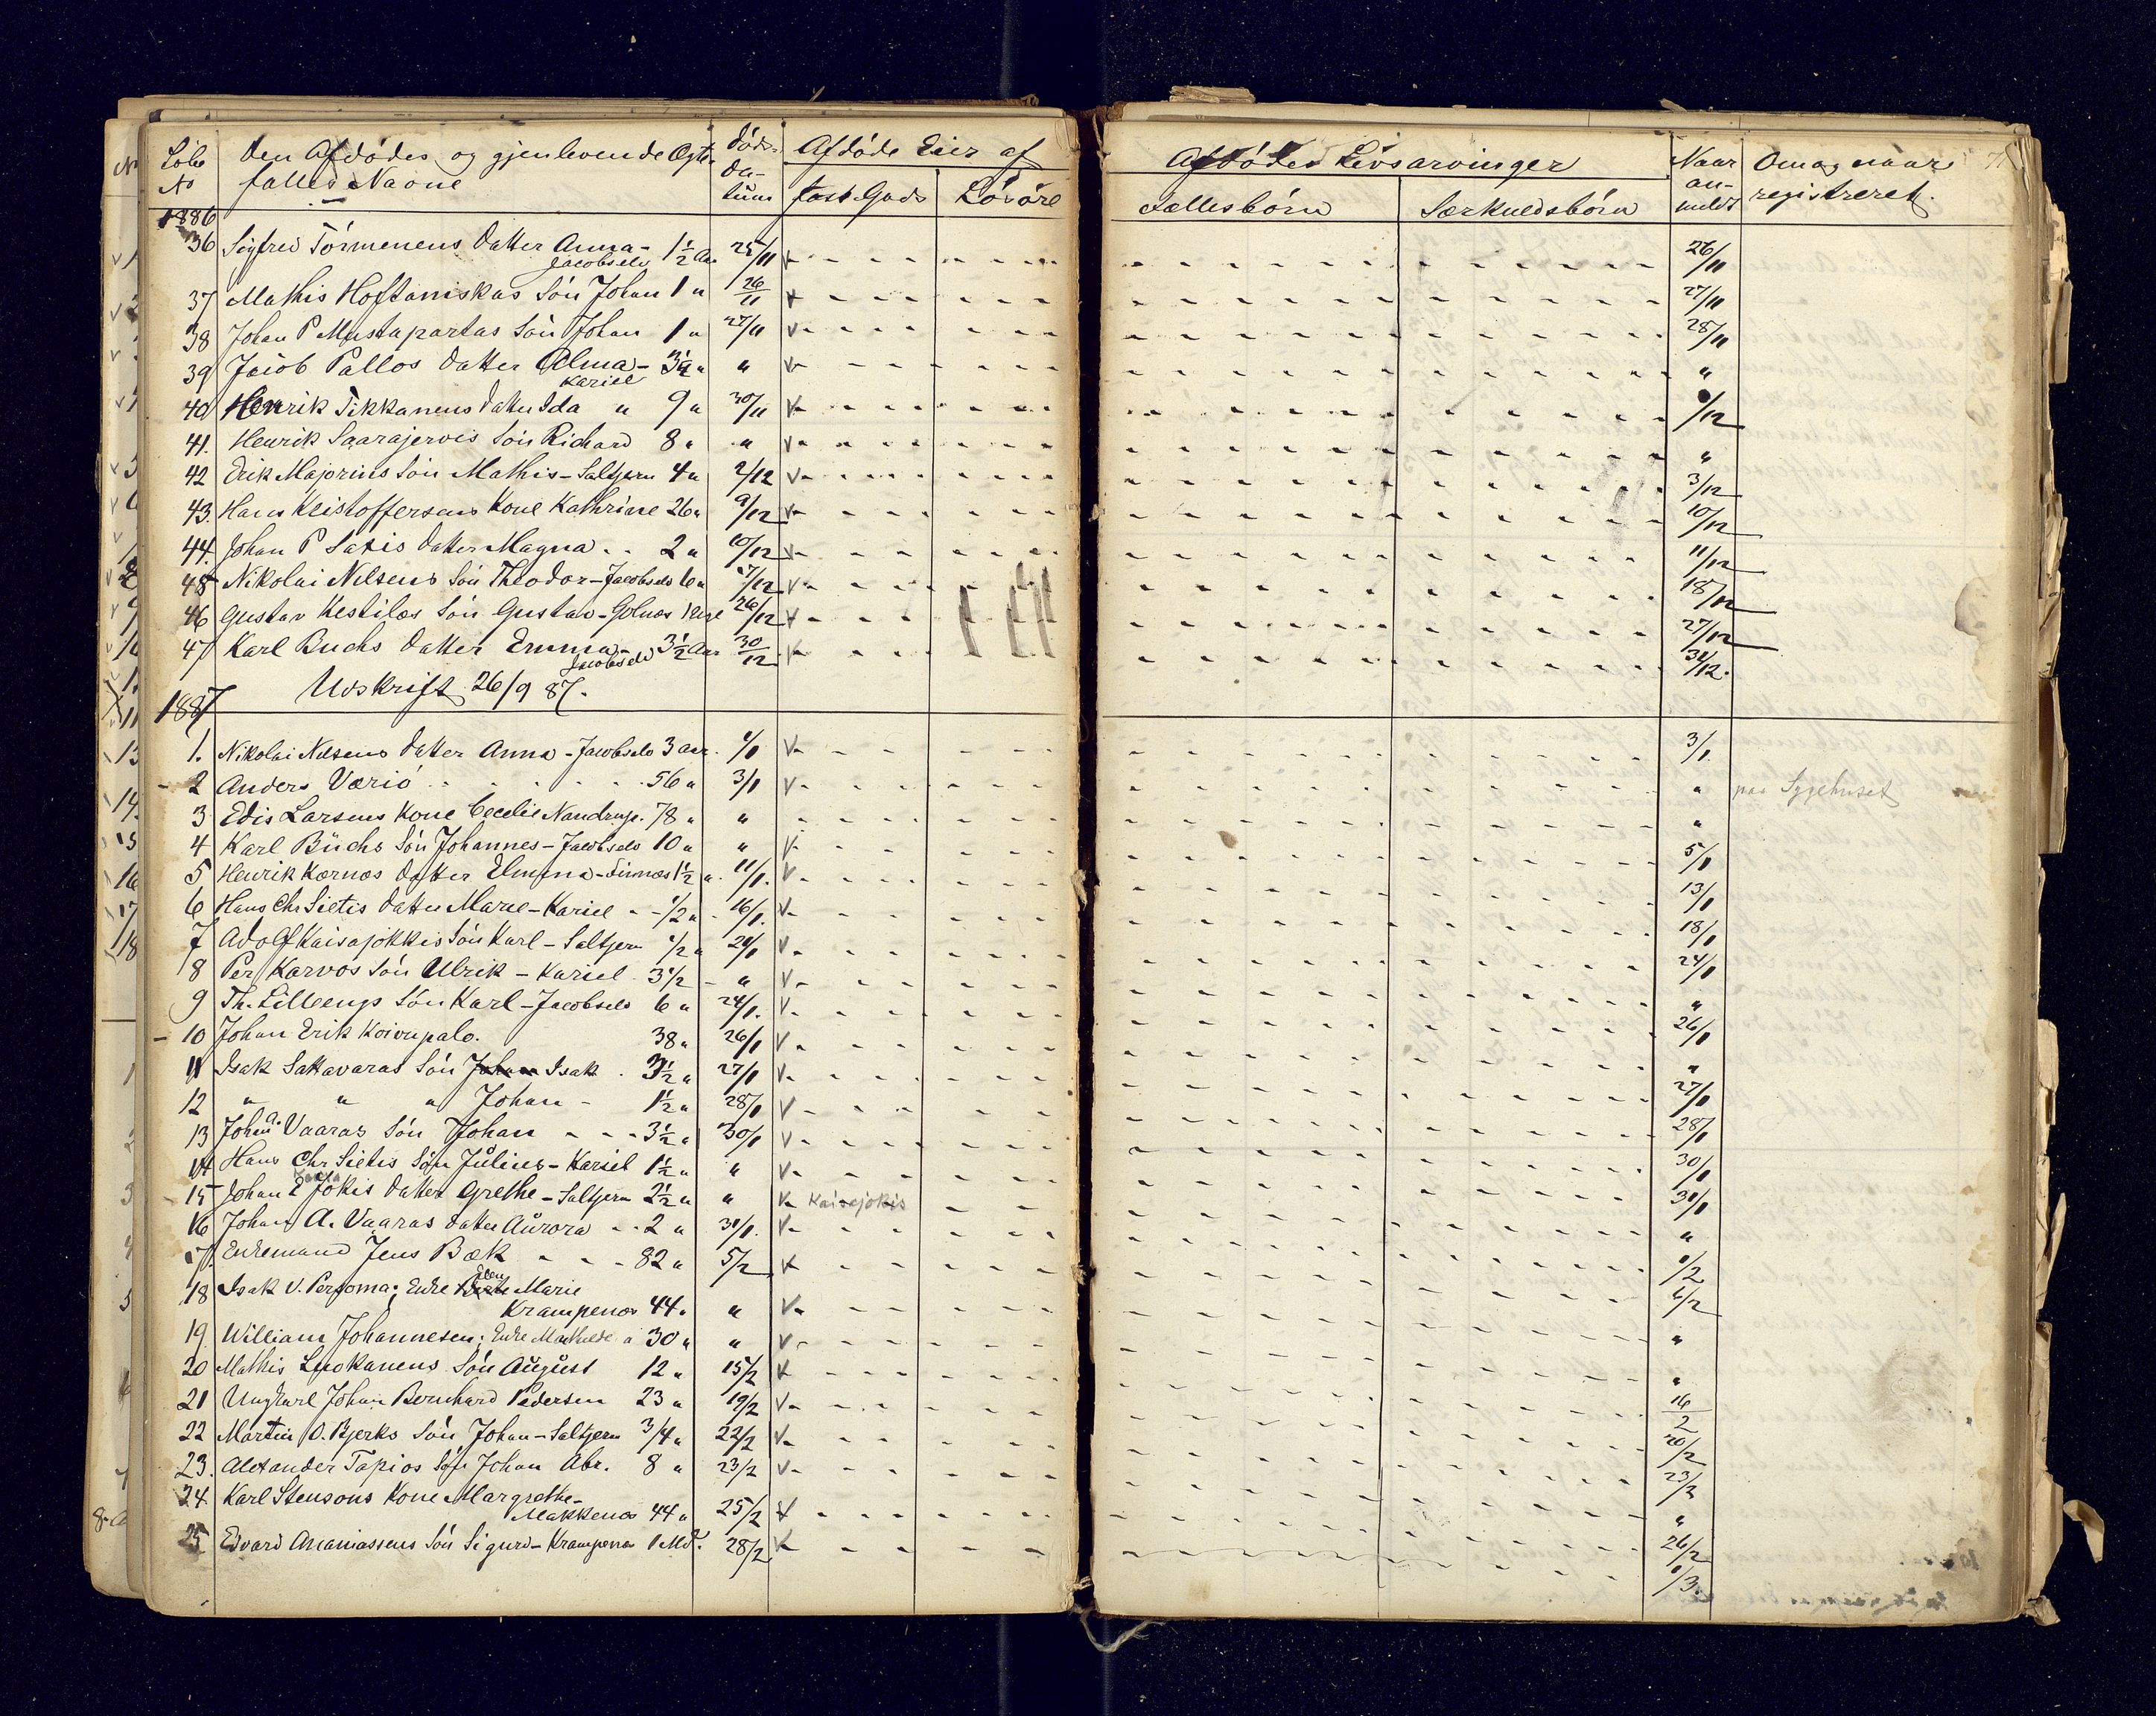 Løbe No
Den Afdødes og gjenlevende Ægte-
fælles Navne
Døds-
da-
tum
Afdøde Eier af
fast Gods
Løsøre
Afdødes Livsarvinger
Fællesbørn
Særkuldsbørn
Naar
an-
meldt
Om og naar
registreret.
1886
36 Sigfred Törmenens Datter Anna- 1½ Aar 25/11 26/11
Jacobselv
37 Mathis Hoftaniskas Søn Johan 1 " 26/11 27/11
38 Johan P Mustapartas Søn Johan 1 " 27/11 28/11
39 Jacob Pallos Datter Alma- " "
Kariel
40 Henrik Tikkanens Datter Ida " 9 " 30/11 /12
41. Henrik Saarajervis Søn Richard 8 " " "
42 Erik Majorins Søn Mathis-Saltjern 4 " 2/12 3/12
43. Hans Kristoffersens Kone Kathrine 26 " 9/12 10/12
44. Johan P Saxis Datter Magna 2 " 10/12 11/12
45 Nikolai Nilsens Søn Theodor-Jacobselv 6 " 17/12 18/12
46 Gustav Kestilas Søn Gustav-Golnæs 1 Uge 26/12 27/12
47 Karl Buchs Datter Emma- 3½ Aar 30/12 31/12.
Jacobselv
Udskrift 26/9 87.
1887
1. Nikolai Nilsens Datter Anna-Jacobselv 3 aar. 1/1 3/1.
2 Anders Værio 56 " 3/1 " paa Sygehuset
3 Edis Larsens Kone Cecelie Nandrup. 78 " " "
4 Karl Büchs Søn Johannes-Jacobselv 10 " " 5/1
5 Henrik Kornæs Datter Elmina- 1½ " 11/1. 13/1
6 Hans Chr Sietis Datter Marie-Kariel 1/2 " 16/1. 18/1
7 Adolf Kaisajokkis Søn Karl-Saltjern 1/2 " 24/1
8 Per Karvos Søn Ulrik-Kariel 3½ " "
9 Th. Lilleengs Søn Karl-Jacobselv 6 " 24/1. 26/1
10 Johan Erik Koivupalo. 38 " 26/1 "
11 Isak Sakavaras Søn Johan Isak 3½ " 27/1 27/1
12 " " " Johan 1½ " 28/1 28/1
13 Johan A. Vaaras Søn Johan 3½ " 30/1 30/1
14 Hans Chr Sietis Søn Julius-Kariel 1½ " " 31/1
15 Johan E Jokis Datter Grethe-Saltjern 2½ " " Kaisajokis "
16 Johan A. Vaaras Datter Aurora 2 " 31/1. 1/2
17. Enkemand Jens Bæk 82 " 5/2 6/2
18 Isak V. Persoma; Enke Elen Marie
Krampenæs 44 " " "
19 William Johannesen; Enke Mathilde " 30 " " "
20 Mathis Luokanens Søn August 12 " 15/2 16/2
21 Ungkarl Johan Bernhard Pedersen 23 " 19/2 20/2
22 Martin O. Bjerks Søn Johan-Saltjern 3/4 " 22/2 23/2
23. Alexander Tapios Søn Johan Abr. 8 " 23/2 "
24. Karl Stensons Kone Margrethe-
Makkenæs 44 " 25/2 26/2
25 Edvard Ananiassens Søn Sigurd-Krampenæs 1 Md. 28/2 1/3.